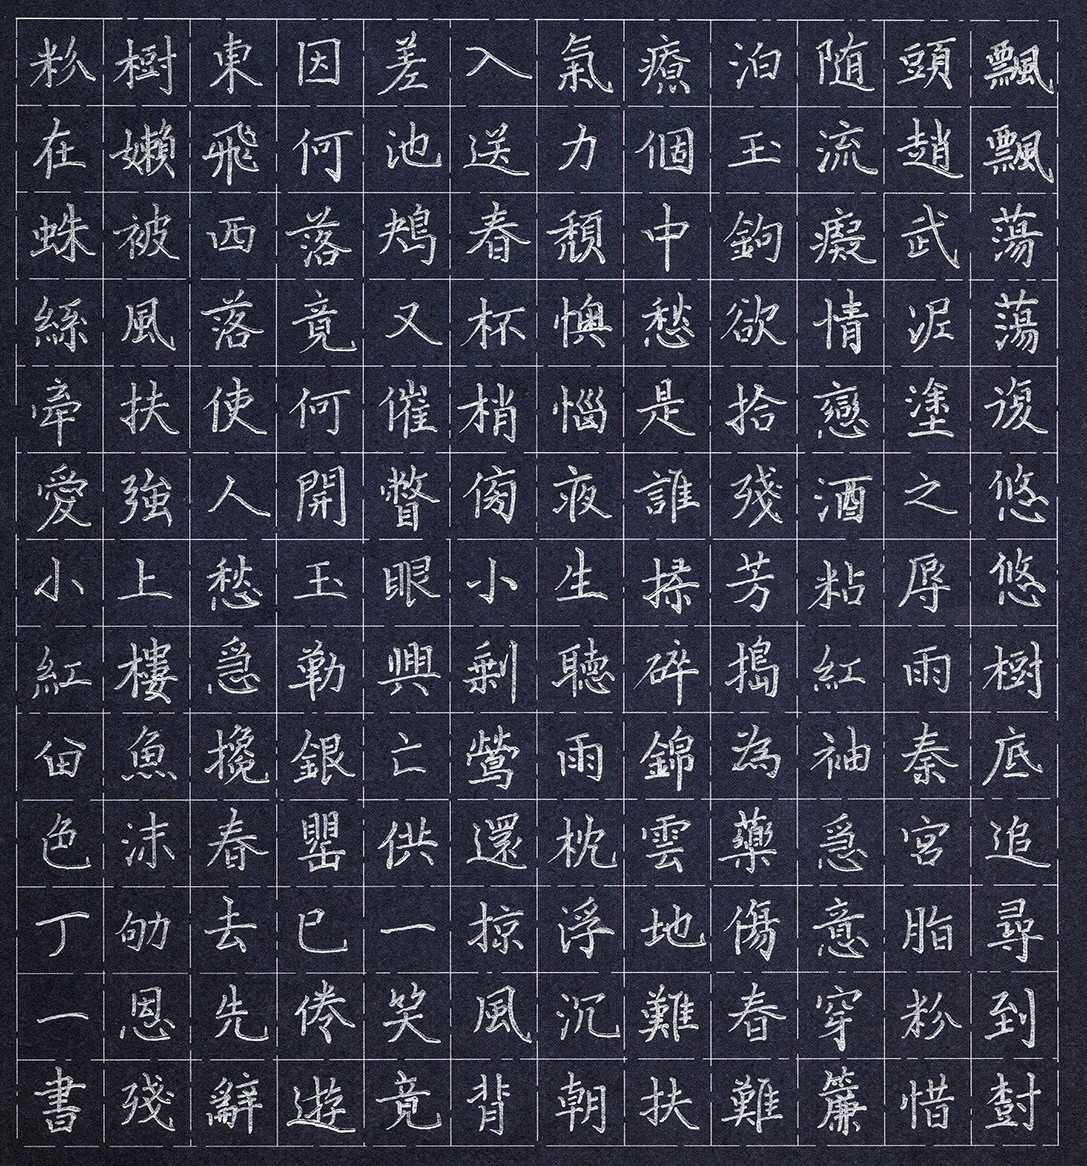 飄飄蕩蕩復悠悠樹底追尋到樹
頭趙武泥塗之辱雨秦宮脂粉惜
随流癡情戀酒粘紅袖急意穿簾
泊玉鉤欲拾殘芳搗為藥傷春難
療個中愁是誰揉碎錦雲地難扶
氣力頹懊惱夜生聽雨枕浮沉朝
入送春杯梢傍小剩鶯還掠風背
差池鴂又催瞥眼興亡供一笑竟
因何落竟何開玉勒銀罌已倦遊
東飛西落使人愁急攙春去先辭
樹嬾被風扶強上樓魚沫劬恩殘
粉在蛛絲牽愛小紅留色丁一書